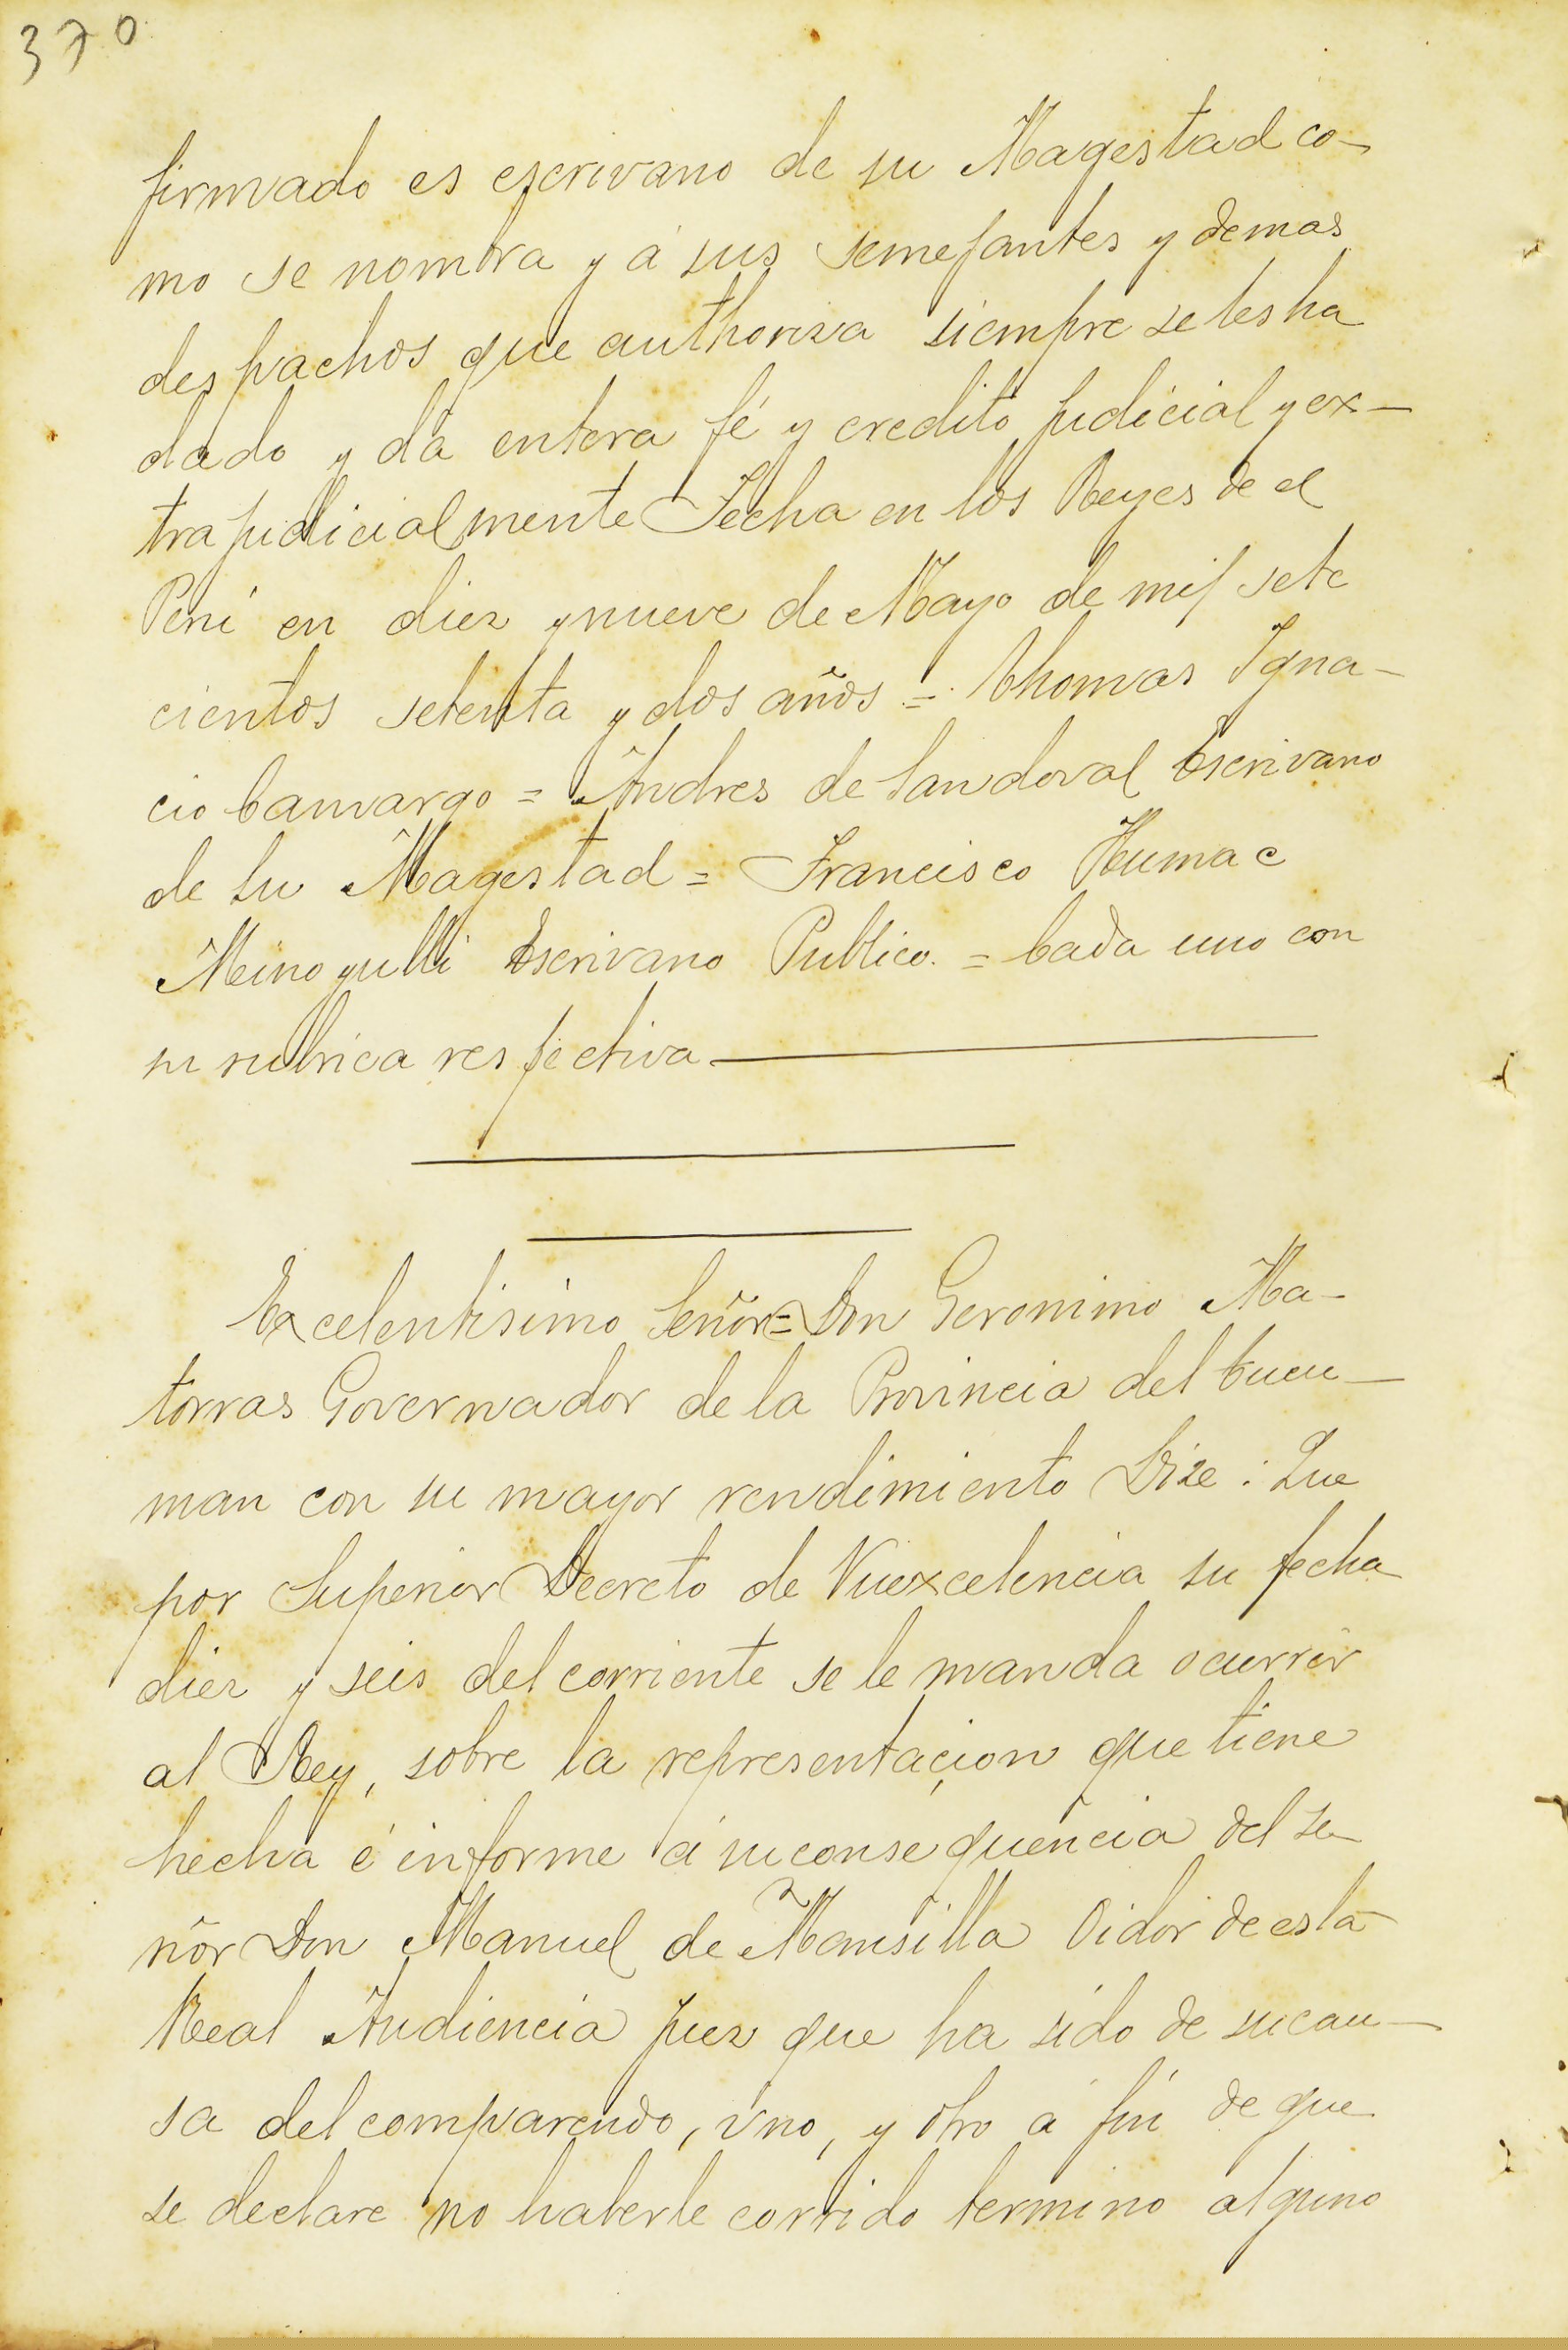 370
firmado es escrivano de su Magestad co-
mo se nombra y á sus semejantes y demas
despachos que authoriza siempre se les ha
dado y dá entera fé y credito judicial y ex-
trajudicialmente Fecha en los Reyes de el
Perú en diez y nueve de Mayo de mil sete
cientos setenta y dos años = Thomas Igna-
cio Camargo = Andres de Sandoval Escrivano
de Su Magestad = Francisco Humac
Minoyulli Escrivano Publico. = Cada uno con
su rubrica respectiva
Excelentisimo Señor = Don Geronimo Ma-
torras Governador de la Provincia del Tucu-
man con su mayor rendimiento Dize: Que
por Superior Decreto de Vuexcelencia su fecha
diez y seis del corriente se le manda ocurrir
al Rey, sobre la representaçion que tiene
hecha é informe á su consequencia del Se
ñor Don Manuel de Mansilla Oidor de esta
Real Audiencia Juez que ha sido de su cau-
sa del comparendo, vno, y otro á fin de que
se declare no haberle corrido termino alguno